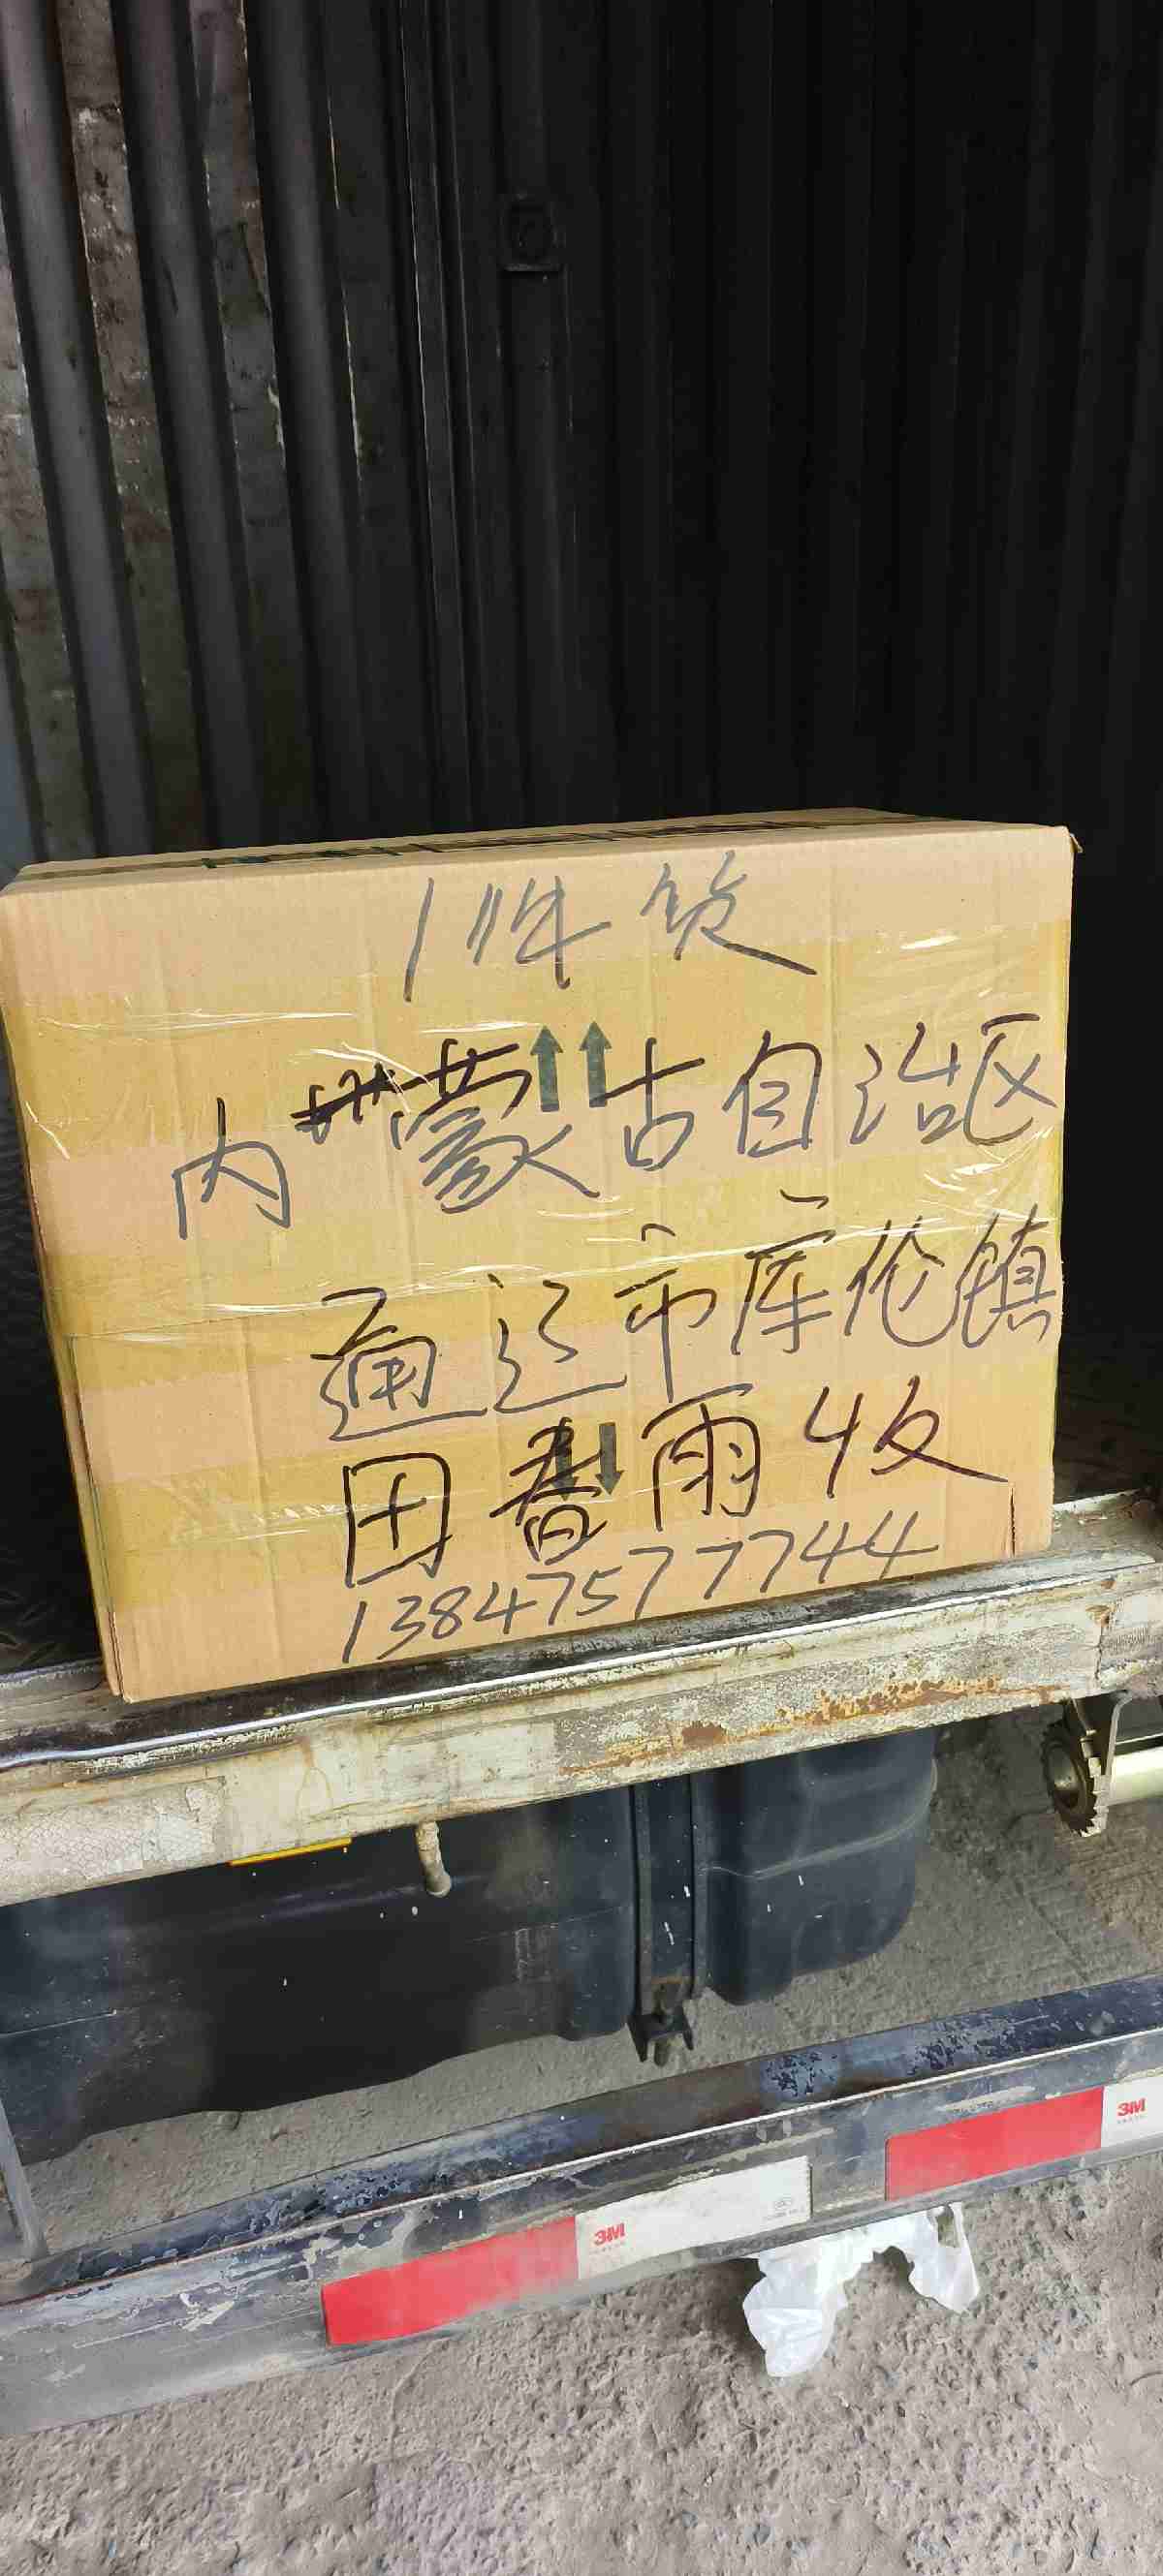 1件货
内蒙古自治区
通辽市库伦镇
田春雨收
13847577744
3M
3M